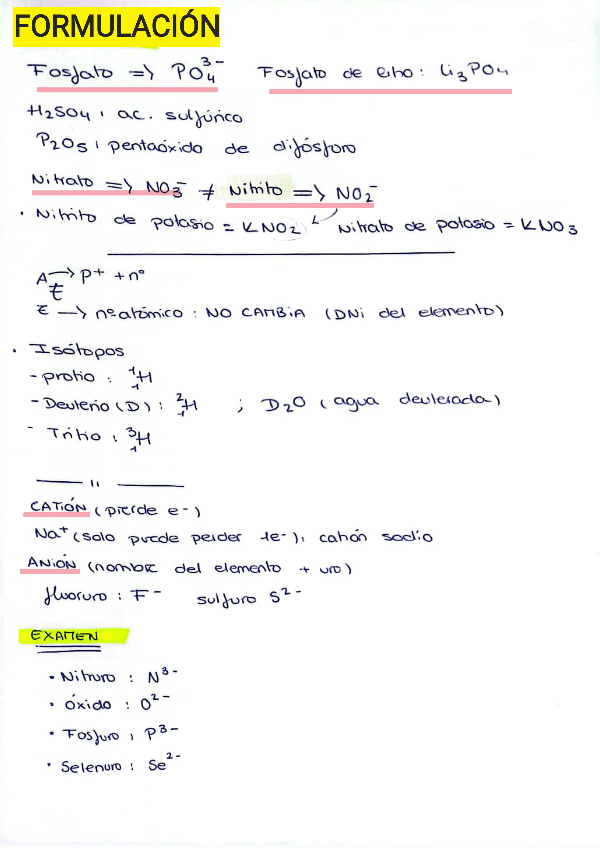 FORMULACIÓN
Fosfato => PO₄³⁻ Fosfato de litio: Li₃PO₄
H₂SO₄: ac. sulfúrico
P₂O₅: pentaóxido de difósforo
Nitrato => NO₃⁻ ≠ Nitrito => NO₂⁻
· Nitrito de potasio = KNO₂ Nitrato de potasio = KNO₃
A → p⁺ + nº
Z
Z → nº atómico : NO CAMBIA (DNi del elemento)
· Isótopos
- protio : ¹₁H
- Deuterio (D) : ²₁H ; D₂O (agua deuterada)
- Tritio : ³₁H
——— " ———
CATIÓN (pierde e-)
Na⁺ (solo puede perder 1e-): catión sodio
ANIÓN (nombre del elemento + uro)
fluoruro : F⁻ sulfuro S²⁻
EXAMEN
· Nitruro : N³⁻
· óxido : O²⁻
· Fosfuro : P³⁻
· Selenuro : Se²⁻